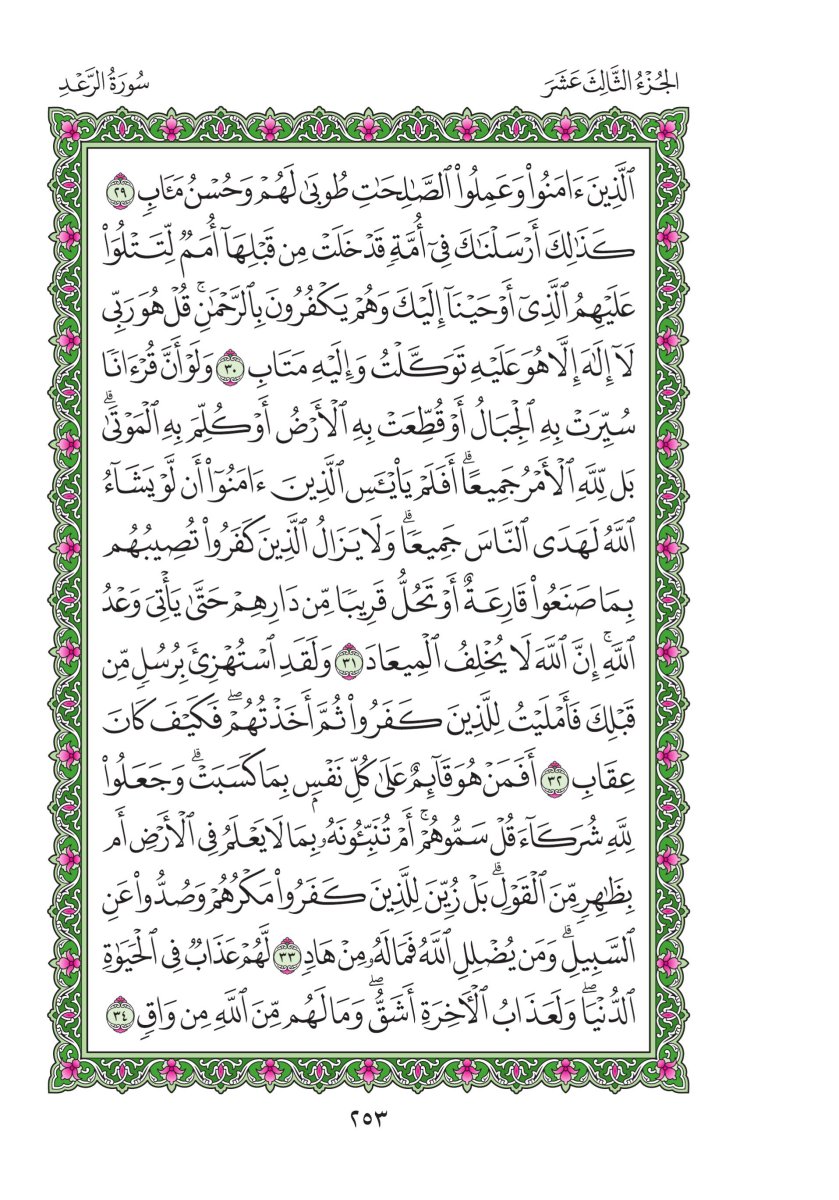 الجُزْءُ الثَّالِثَ عَشَرَ
سُورَةُ الرَّعْدِ
ٱلَّذِينَ ءَامَنُواْ وَعَمِلُواْ ٱلصَّٰلِحَٰتِ طُوبَىٰ لَهُمۡ وَحُسۡنُ مَـَٔابٖ ٢٩
كَذَٰلِكَ أَرۡسَلۡنَٰكَ فِيٓ أُمَّةٖ قَدۡ خَلَتۡ مِن قَبۡلِهَآ أُمَمٞ لِّتَتۡلُوَاْ
عَلَيۡهِمُ ٱلَّذِيٓ أَوۡحَيۡنَآ إِلَيۡكَ وَهُمۡ يَكۡفُرُونَ بِٱلرَّحۡمَٰنِۚ قُلۡ هُوَ رَبِّي
لَآ إِلَٰهَ إِلَّا هُوَ عَلَيۡهِ تَوَكَّلۡتُ وَإِلَيۡهِ مَتَابِ ٣٠ وَلَوۡ أَنَّ قُرۡءَانٗا
سُيِّرَتۡ بِهِ ٱلۡجِبَالُ أَوۡ قُطِّعَتۡ بِهِ ٱلۡأَرۡضُ أَوۡ كُلِّمَ بِهِ ٱلۡمَوۡتَىٰۗ
بَل لِّلَّهِ ٱلۡأَمۡرُ جَمِيعًاۗ أَفَلَمۡ يَاْيۡـَٔسِ ٱلَّذِينَ ءَامَنُوٓاْ أَن لَّوۡ يَشَآءُ
ٱللَّهُ لَهَدَى ٱلنَّاسَ جَمِيعٗاۗ وَلَا يَزَالُ ٱلَّذِينَ كَفَرُواْ تُصِيبُهُم
بِمَا صَنَعُواْ قَارِعَةٌ أَوۡ تَحُلُّ قَرِيبٗا مِّن دَارِهِمۡ حَتَّىٰ يَأۡتِيَ وَعۡدُ
ٱللَّهِۚ إِنَّ ٱللَّهَ لَا يُخۡلِفُ ٱلۡمِيعَادَ ٣١ وَلَقَدِ ٱسۡتُهۡزِئَ بِرُسُلٖ مِّن
قَبۡلِكَ فَأَمۡلَيۡتُ لِلَّذِينَ كَفَرُواْ ثُمَّ أَخَذۡتُهُمۡۖ فَكَيۡفَ كَانَ
عِقَابِ ٣٢ أَفَمَنۡ هُوَ قَآئِمٌ عَلَىٰ كُلِّ نَفۡسِۭ بِمَا كَسَبَتۡۗ وَجَعَلُواْ
لِلَّهِ شُرَكَآءَ قُلۡ سَمُّوهُمۡۚ أَمۡ تُنَبِّـُٔونَهُۥ بِمَا لَا يَعۡلَمُ فِي ٱلۡأَرۡضِ أَم
بِظَٰهِرٖ مِّنَ ٱلۡقَوۡلِۗ بَلۡ زُيِّنَ لِلَّذِينَ كَفَرُواْ مَكۡرُهُمۡ وَصُدُّواْ عَنِ
ٱلسَّبِيلِۗ وَمَن يُضۡلِلِ ٱللَّهُ فَمَا لَهُۥ مِنۡ هَادٖ ٣٣ لَّهُمۡ عَذَابٞ فِي ٱلۡحَيَوٰةِ
ٱلدُّنۡيَاۖ وَلَعَذَابُ ٱلۡأٓخِرَةِ أَشَقُّۖ وَمَا لَهُم مِّنَ ٱللَّهِ مِن وَاقٖ ٣٤
٢٥٣